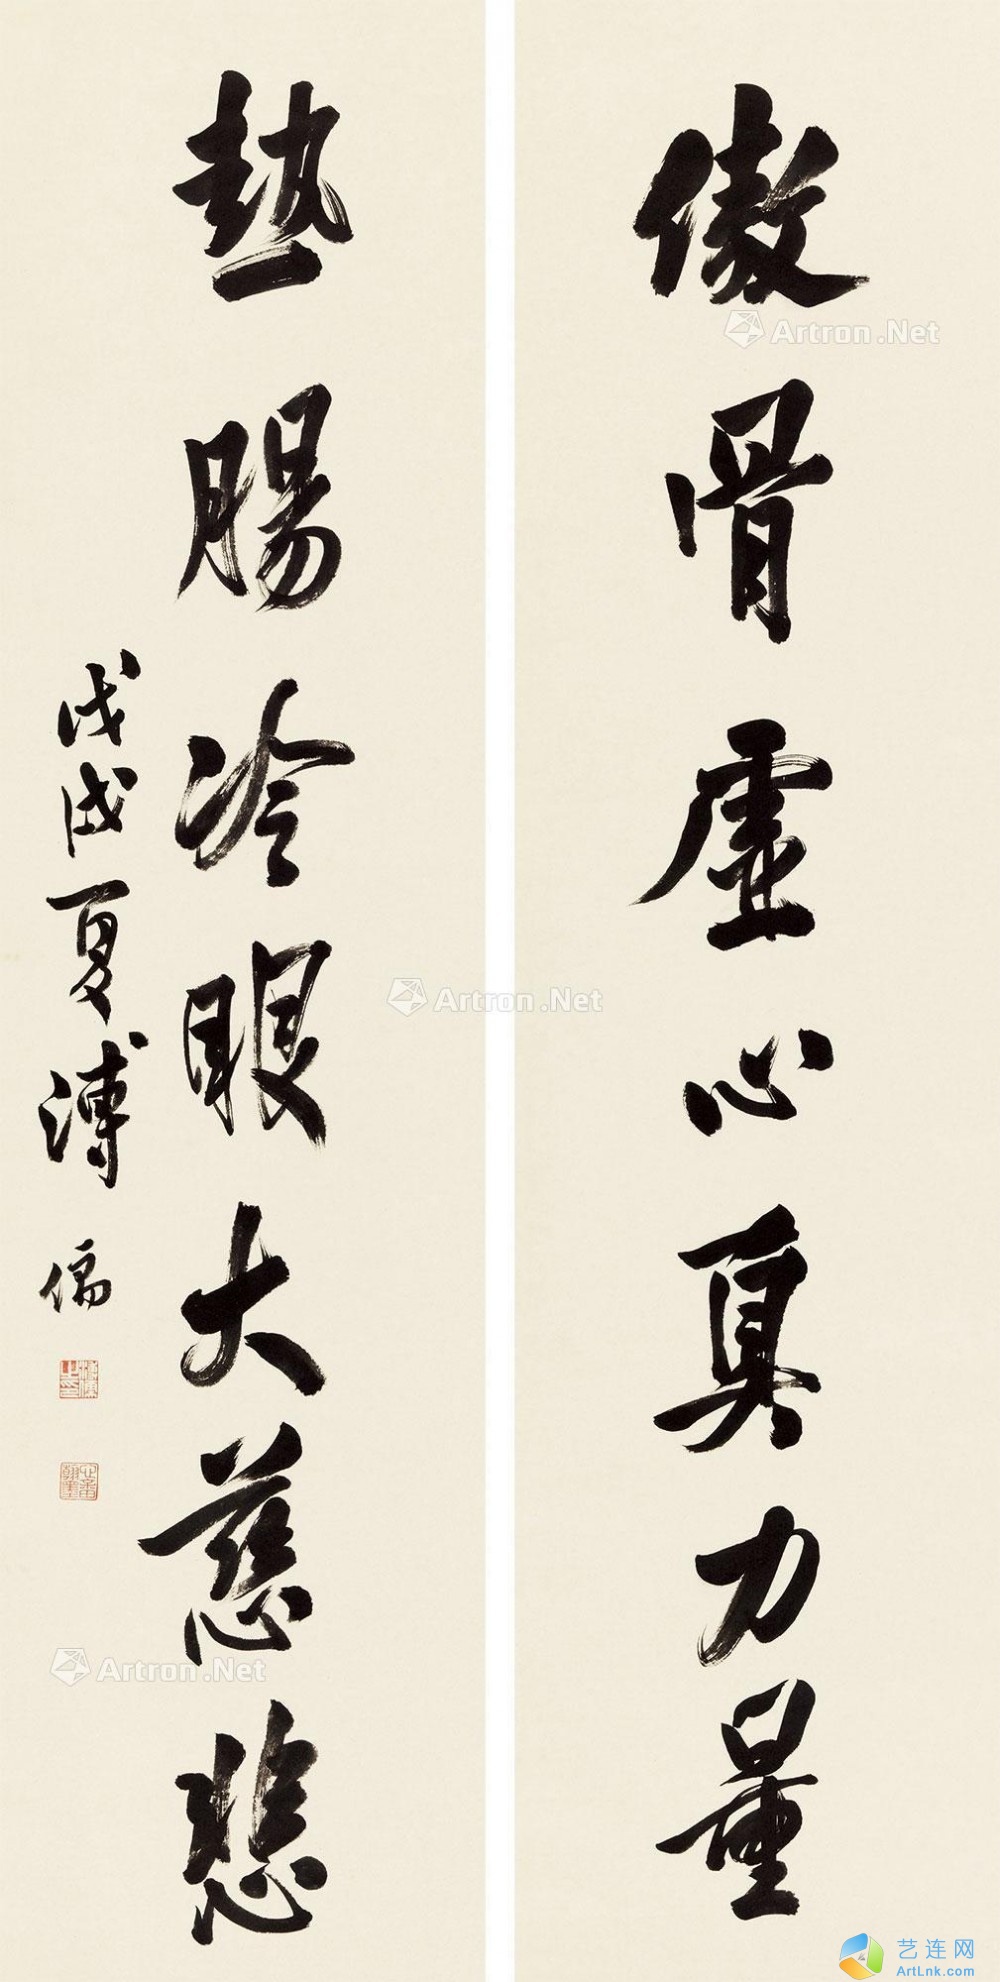 傲骨虛心真力量
熱腸冷眼大慈悲
戊戌夏溥儒
Artron.Net
Artron.Net
Artron.Net
艺连网
ArtLnk.com